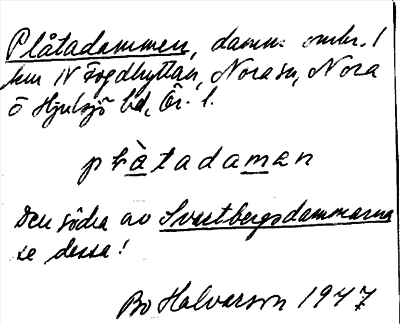 Plåtadammen, damm omkr. 1
km N Fogdhyttan, Nora sn, Nora
o Hjulsjö bd, Ör. l.
plàtadaman
Den södra av Svartbergsdammarna
se dessa!
Bo Halvarson 1947